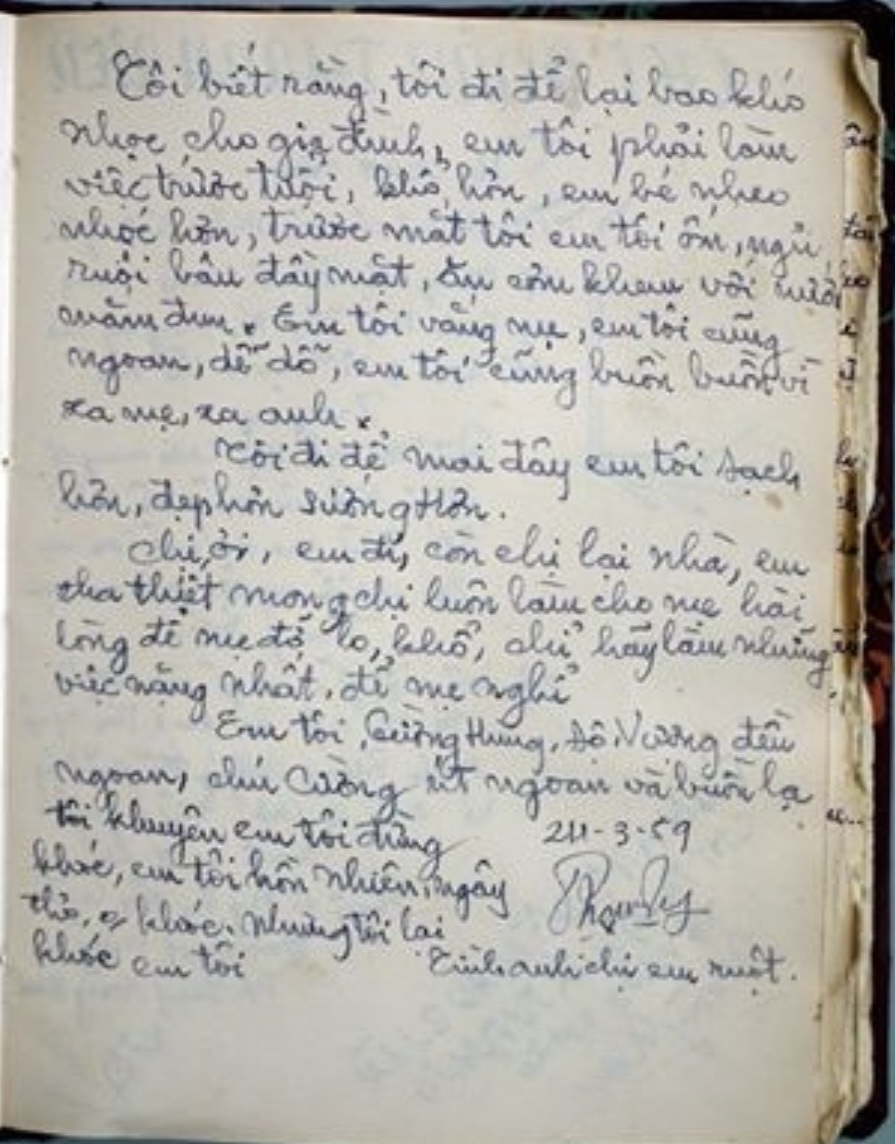 Tôi biết rằng, tôi đi để lại bao khó
nhọc cho gia đình, em tôi phải làm
việc trước tuổi, khổ hơn, em bé nheo
nhóc hơn, trước mắt tôi em tôi ốm, ngủ
ruồi bâu đầy mặt, ăn cơm khem với nước
mắm đun. Em tôi vắng mẹ, em tôi cũng
ngoan, dễ dỗ, em tôi cũng buồn buồn vì
xa mẹ, xa anh.
Tôi đi để mai đây em tôi sạch
hơn, đẹp hơn sướng hơn.
Chị ơi, em đi, còn chị lại nhà, em
tha thiết mong chị luôn làm cho mẹ hài
lòng để mẹ đỡ lo, khổ, chị hãy làm những
việc nặng nhất, để mẹ nghỉ
Em tôi, Hùng, Vượng đều
ngoan, chú Cường út ngoan và buồn lạ
tôi khuyên em tôi đừng
khóc, em tôi hồn nhiên, ngây
thơ, khóc. Nhưng tôi lại
khóc em tôi
24-3-59
Tình anh chị em ruột.